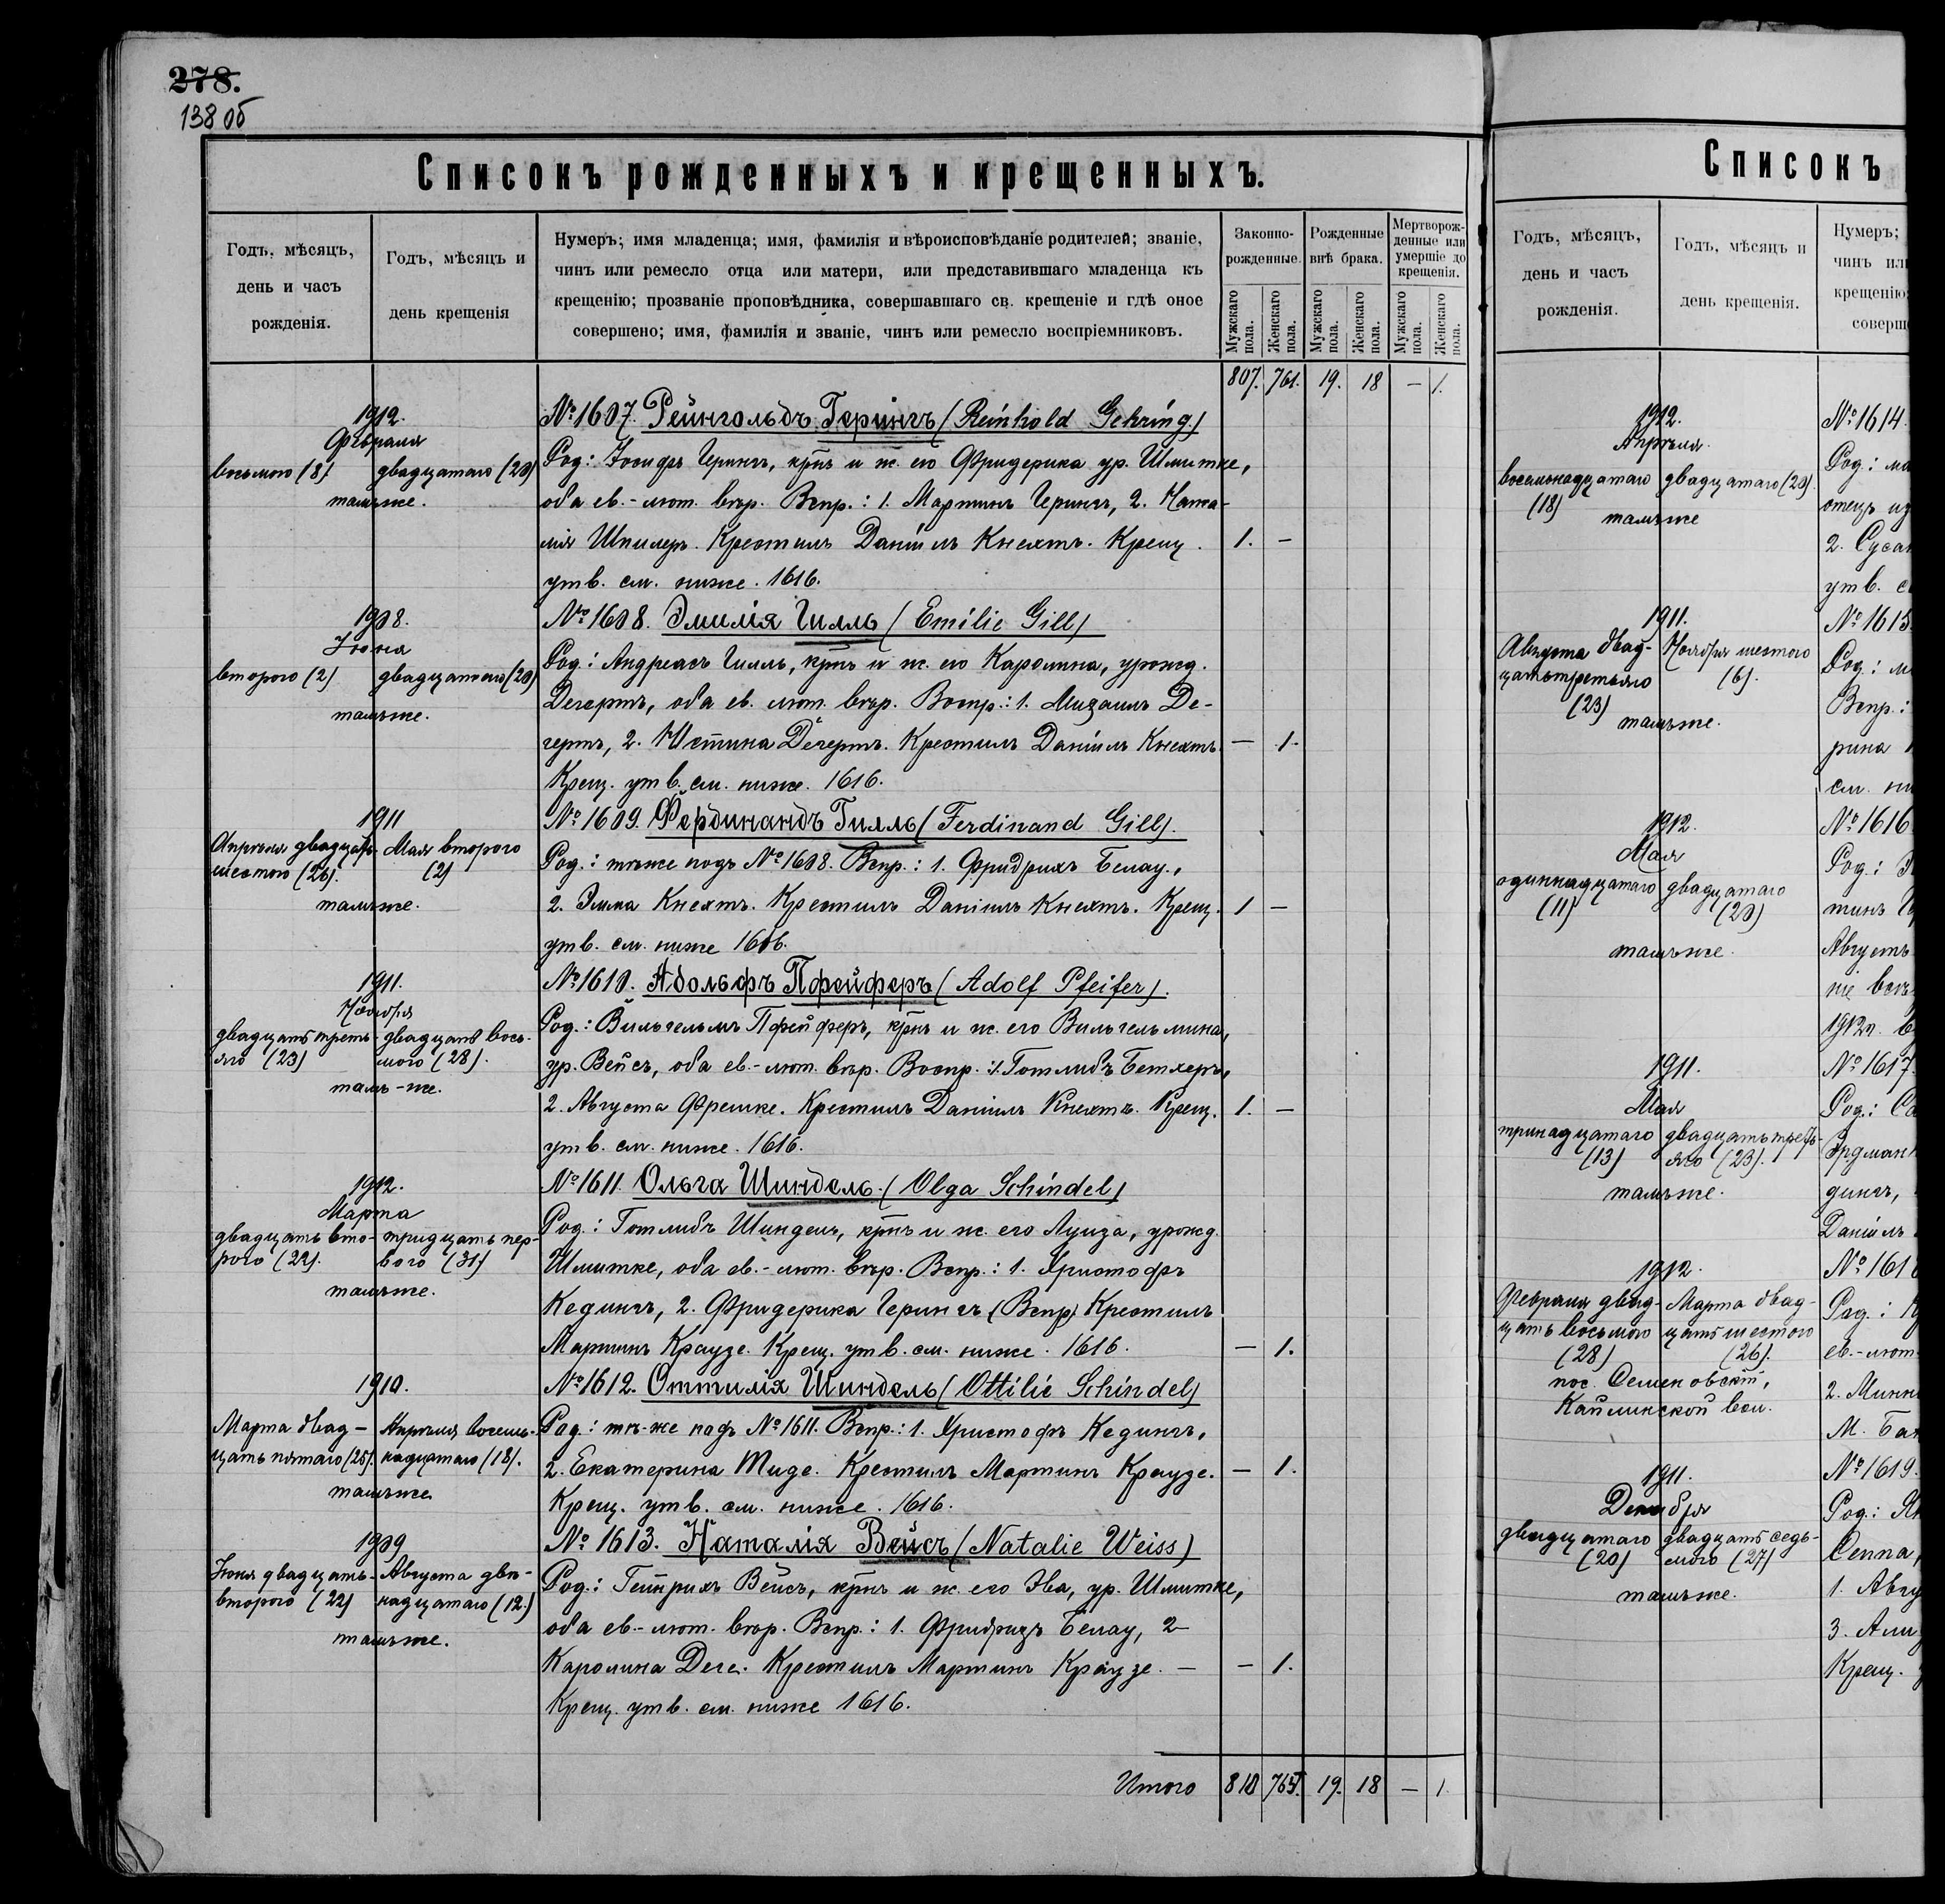 278.
138 об
Списокъ рожденныхъ и крещенныхъ.
Годъ, мѣсяцъ,
день и часъ
рожденія.
Годъ, мѣсяцъ и
день крещенія
Нумеръ; имя младенца; имя, фамилія и вѣроисповѣданіе родителей; званіе,
чинъ или ремесло отца или матери, или представившаго младенца къ
крещенію; прозваніе проповѣдника, совершавшаго св. крещеніе и гдѣ оное
совершено; имя, фамилія и званіе, чинъ или ремесло воспріемниковъ.
Законно-
рожденные.
Рожденные
внѣ брака.
Мертворож-
денные или
умершіе до
крещенія.
Мужскаго пола.
Женскаго пола.
Мужскаго пола.
Женскаго пола.
Мужскаго пола.
Женскаго пола.
807. 761. 19. 18 — 1.
1912.
Февраля
восьмого (8). двадцатаго (20)
тамъже.
№ 1607. Рейнгольдъ Герингъ (Reinhold Gehring)
Род: Іосифъ Герингъ, крнъ и ж. его Фридерика ур. Шмитке,
оба ев.-лют. вѣр. Вспр.: 1. Мартинъ Герингъ, 2. Ната-
лія Шпилеръ. Крестилъ Даніилъ Кнехтъ. Крещ. 1. —
утв. см. ниже. 1616.
1908.
Іюня
второго (2) двадцатаго (20)
тамъже.
№ 1608. Эмилія Гилль (Emilie Gill)
Род: Андреасъ Гилль, крнъ и ж. его Каролина, урожд.
Дегертъ, оба ев. лют. вѣр. Воспр.: 1. Михаилъ Де-
гертъ, 2. Юстина Дегертъ. Крестилъ Даніилъ Кнехтъ — 1.
Крещ. утв. см. ниже. 1616.
1911
Апрѣля двадцать
шестого (26).
Мая второго
(2)
тамъже.
№ 1609. Фердинандъ Гилль (Ferdinand Gill).
Род: тѣже подъ № 1608. Вспр.: 1. Фридрихъ Белау,
2. Эмма Кнехтъ. Крестилъ Даніилъ Кнехтъ. Крещ. 1 —
утв. см. ниже 1616.
1911.
Ноября
двадцать треть-
яго (23)
двадцать вось-
мого (28).
тамъ-же.
№ 1610. Адольфъ Пфейферъ (Adolf Pfeifer).
Род.: Вильгельмъ Пфейферъ, крнъ и ж. его Вильгельмина,
ур. Вейсъ, оба ев.-лют. вѣр. Воспр.: 1. Готлибъ Бетхеръ,
2. Августа Фрешке. Крестилъ Даніилъ Кнехтъ. Крещ. 1. —
утв. см. ниже. 1616.
1912.
Марта
двадцать вто-
рого (22).
тридцать пер-
вого (31)
тамъже.
№ 1611. Ольга Шиндель (Olga Schindel)
Род: Готлибъ Шиндель, крнъ и ж. его Луиза, урожд.
Шмитке, оба ев.-лют. вѣр. Вспр.: 1. Христофъ
Кедингъ, 2. Фридерика Герингъ (Вспр) Крестилъ
Мартинъ Краузе. Крещ. утв. см. ниже. 1616. — 1.
1910.
Марта двад-
цать пятаго (25).
Апрѣля восемь-
надцатаго (18).
тамъже
№ 1612. Оттилія Шиндель (Ottilie Schindel)
Род: тѣ-же подъ № 1611. Вспр.: 1. Христофъ Кедингъ,
2. Екатерина Тиде. Крестилъ Мартинъ Краузе. — 1.
Крещ. утв. см. ниже. 1616.
1909
Іюня двадцать-
второго (22)
Августа двѣ-
надцатаго (12.)
тамъже.
№ 1613. Наталія Вейсъ (Natalie Weiss)
Род: Гейнрихъ Вейсъ, крнъ и ж. его Эва, ур. Шмитке,
оба ев.-лют. вѣр. Вспр.: 1. Фридрихъ Белау, 2
Каролина Деге. Крестилъ Мартинъ Краузе. — — 1.
Крещ. утв. см. ниже 1616.
Итого 810 765. 19. 18 — 1.
Списокъ
Годъ, мѣсяцъ,
день и часъ
рожденія.
Годъ, мѣсяцъ и
день крещенія.
Нумеръ;
чинъ ил
крещенію
соверш
1912.
Апрѣля.
восемьнадцатаго
(18)
двадцатаго (20).
тамъже
№ 1614.
Род.:
отецъ
2. Сусан
утв.
1911.
Августа двад-
цатьтретьяго
(23)
Ноября шестого
(6).
тамъже.
№ 1615.
Род.:
Вспр.:
рина
см.
1912.
Мая
одиннадцатаго
(11)
двадцатаго
(20)
тамъже.
№ 1616
Род.:
тинъ
Августъ
ніе
1912
1911.
Мая
тринадцатаго
(13)
двадцать треть-
яго (23).
тамъже.
№ 1617.
Род.:
Эрдман
дингъ,
Даніилъ
1912.
Февраля двад-
цать восьмого
(28)
Марта двад-
цать шестого
(26).
пос. Семеновскій,
Кайлинской вол.
№ 1618
Род.:
ев.-лют.
2. Минн
М.
1911.
Декабря
двадцатаго
(20)
двадцать седь-
мого (27)
тамъже.
№ 1619.
Род.:
Сенна,
1. Авгу
3.
Крещ.